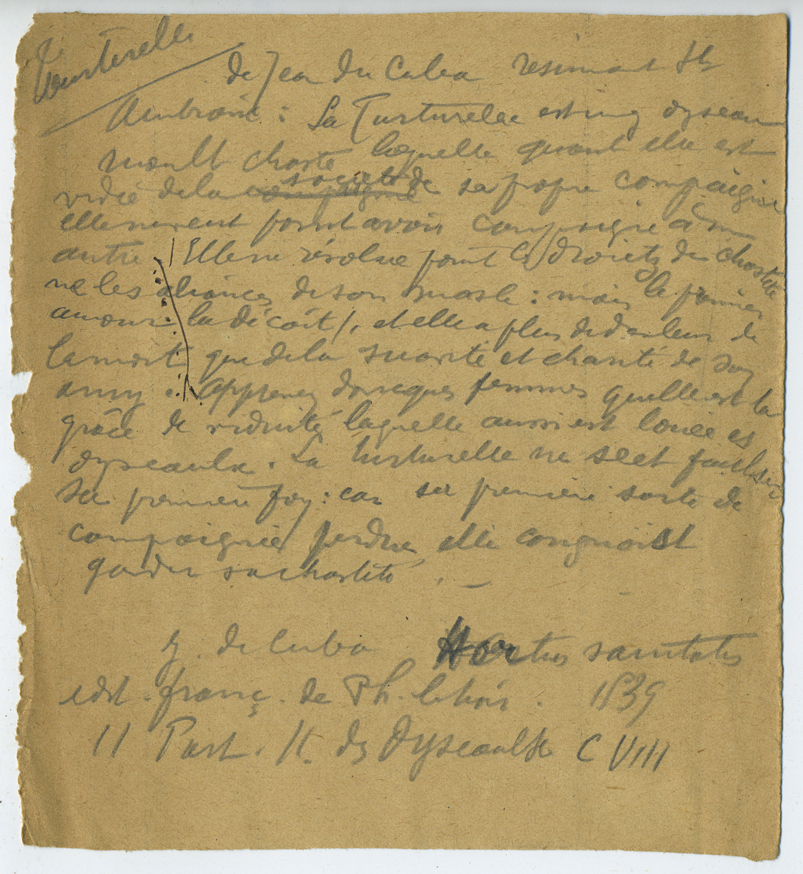 Tourterelle
de Jean du Cuba resumant St
Ambroise : La Turturelle est ung oyseau
moult chaste laquelle quant elle est
vidié de la compaignie societe de sa propre compaignie
elle ne veult point avoir compaignie à un
autre / Elle ne résolue point les droictz de chasteté
ne les aliances de son masle : mais le premier
amour la décoit /, et elle a plus de douleur de
la mort que de la suavité et charité de son
amy . Apprenez doncques femmes quelle est la
grâce de viduité laquelle aussi est louée es
oyseaulx . La turturelle ne scet faulser
sa première foy : car sa première sorte de
compaignie perdue, elle congnoist
garder sa chasteté . —
J. de Cuba Hortus sanitatis
édit . franç . de Ph. le Noir . 1539
II Part . tt. des Oyseaulx C VIII